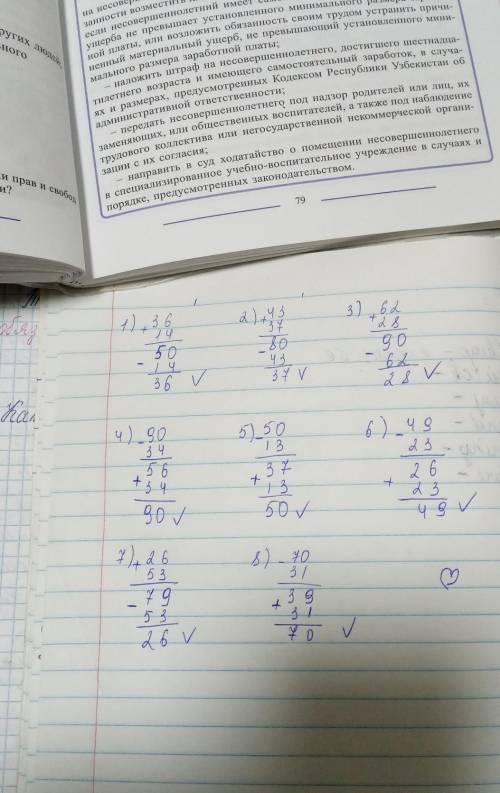 на несовер
занности возместить
если несовершеннолетний имеет
ущерба не превышает установленного минимального размера
ной платы, или возложить обязанность своим трудом устранить причи-
ненный материальный ущерб, не превышающий установленного мини-
мального размера заработной платы;
– наложить штраф на несовершеннолетнего, достигшего шестнадца-
тилетнего возраста и имеющего самостоятельный заработок, в случа-
ях и размерах, предусмотренных Кодексом Республики Узбекистан об
административной ответственности;
– передать несовершеннолетнего под надзор родителей или лиц, их
заменяющих, или общественных воспитателей, а также под наблюдение
трудового коллектива или негосударственной некоммерческой органи-
зации с их согласия;
– направить в суд ходатайство о помещении несовершеннолетнего
в специализированное учебно-воспитательное учреждение в случаях и
порядке, предусмотренных законодательством.
79
ругих людей;
ьного
и прав и свобод
и?
1) + 36
14
50
- 14
36 ✓
2) + 43
37
80
- 43
37 ✓
3) + 62
28
90
- 62
28 ✓
4) - 90
34
56
+ 34
90 ✓
5) - 50
13
37
+ 13
50 ✓
6) - 49
23
26
+ 23
49 ✓
7) + 26
53
79
- 53
26 ✓
8) - 70
31
39
+ 31
70 ✓
♡